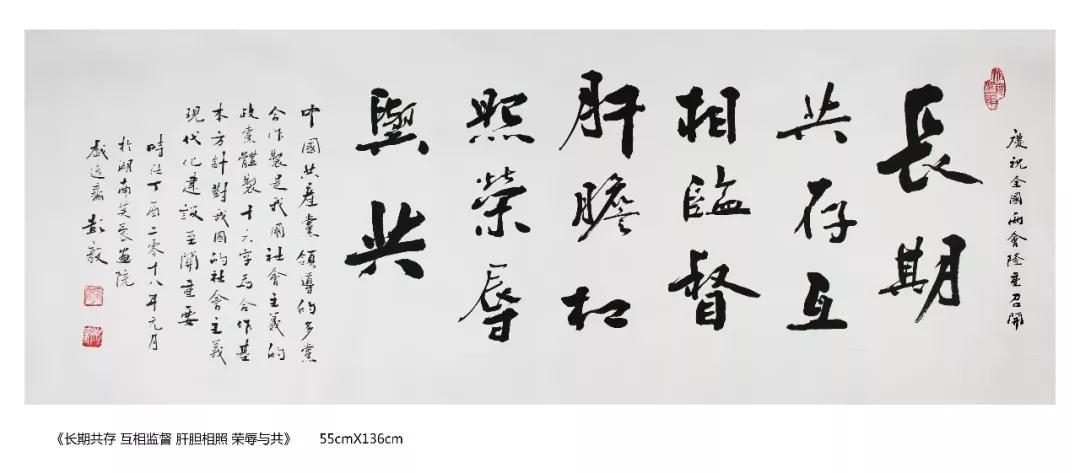 慶祝全國兩會隆重召開
長期
共存互
相監督
肝膽相
照榮辱
與共
中國共產黨領導的多黨
合作製是我國社會主義的
政黨體製十六字為合作基
本方針對我國的社會主義
現代化建設至關重要
時在丁酉二零十八年元月
於湖南笑雲畫院
彭毅
《长期共存 互相监督 肝胆相照 荣辱与共》 55cmX136cm